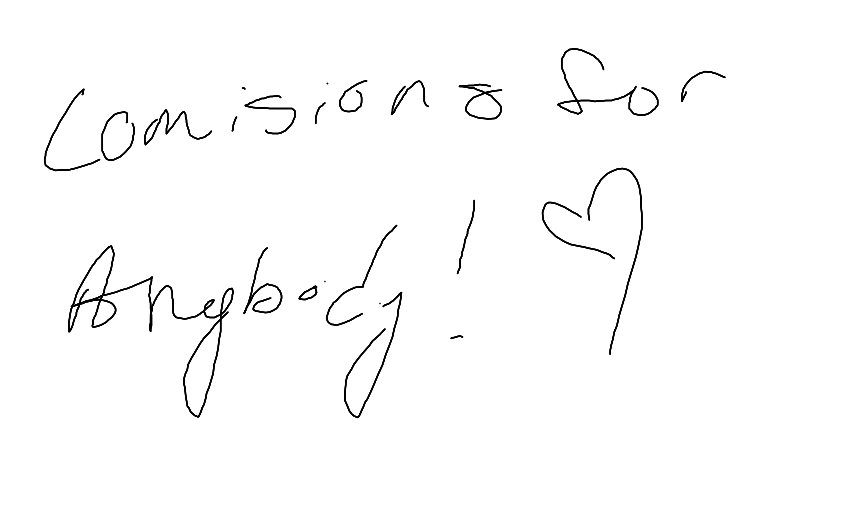 Comisions for
Anybody! ♡